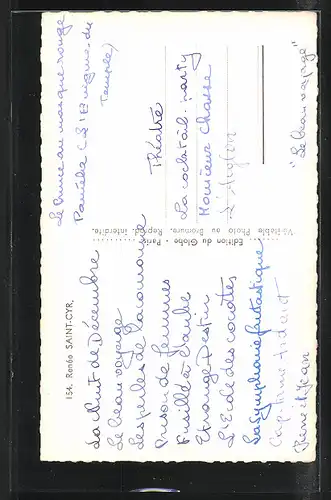 154. Renée SAINT-CYR.
La Nuit de Décembre
Le beau voyage
Les perles de la couronne
Prison de femmes
Fusillé à l'aube
Etrange Destin
L'Ecole des cocottes
La Symphonie fantastique
Pierre et Jean
Edition du Globe - Paris
Véritable Photo au Bromure. Reprod. interdite.
Théatre
La cocktail-party
Monsieur Chasse
L'Aiglon
"Le beau
Le Prince au masque rouge
Paméla (&
Temple)